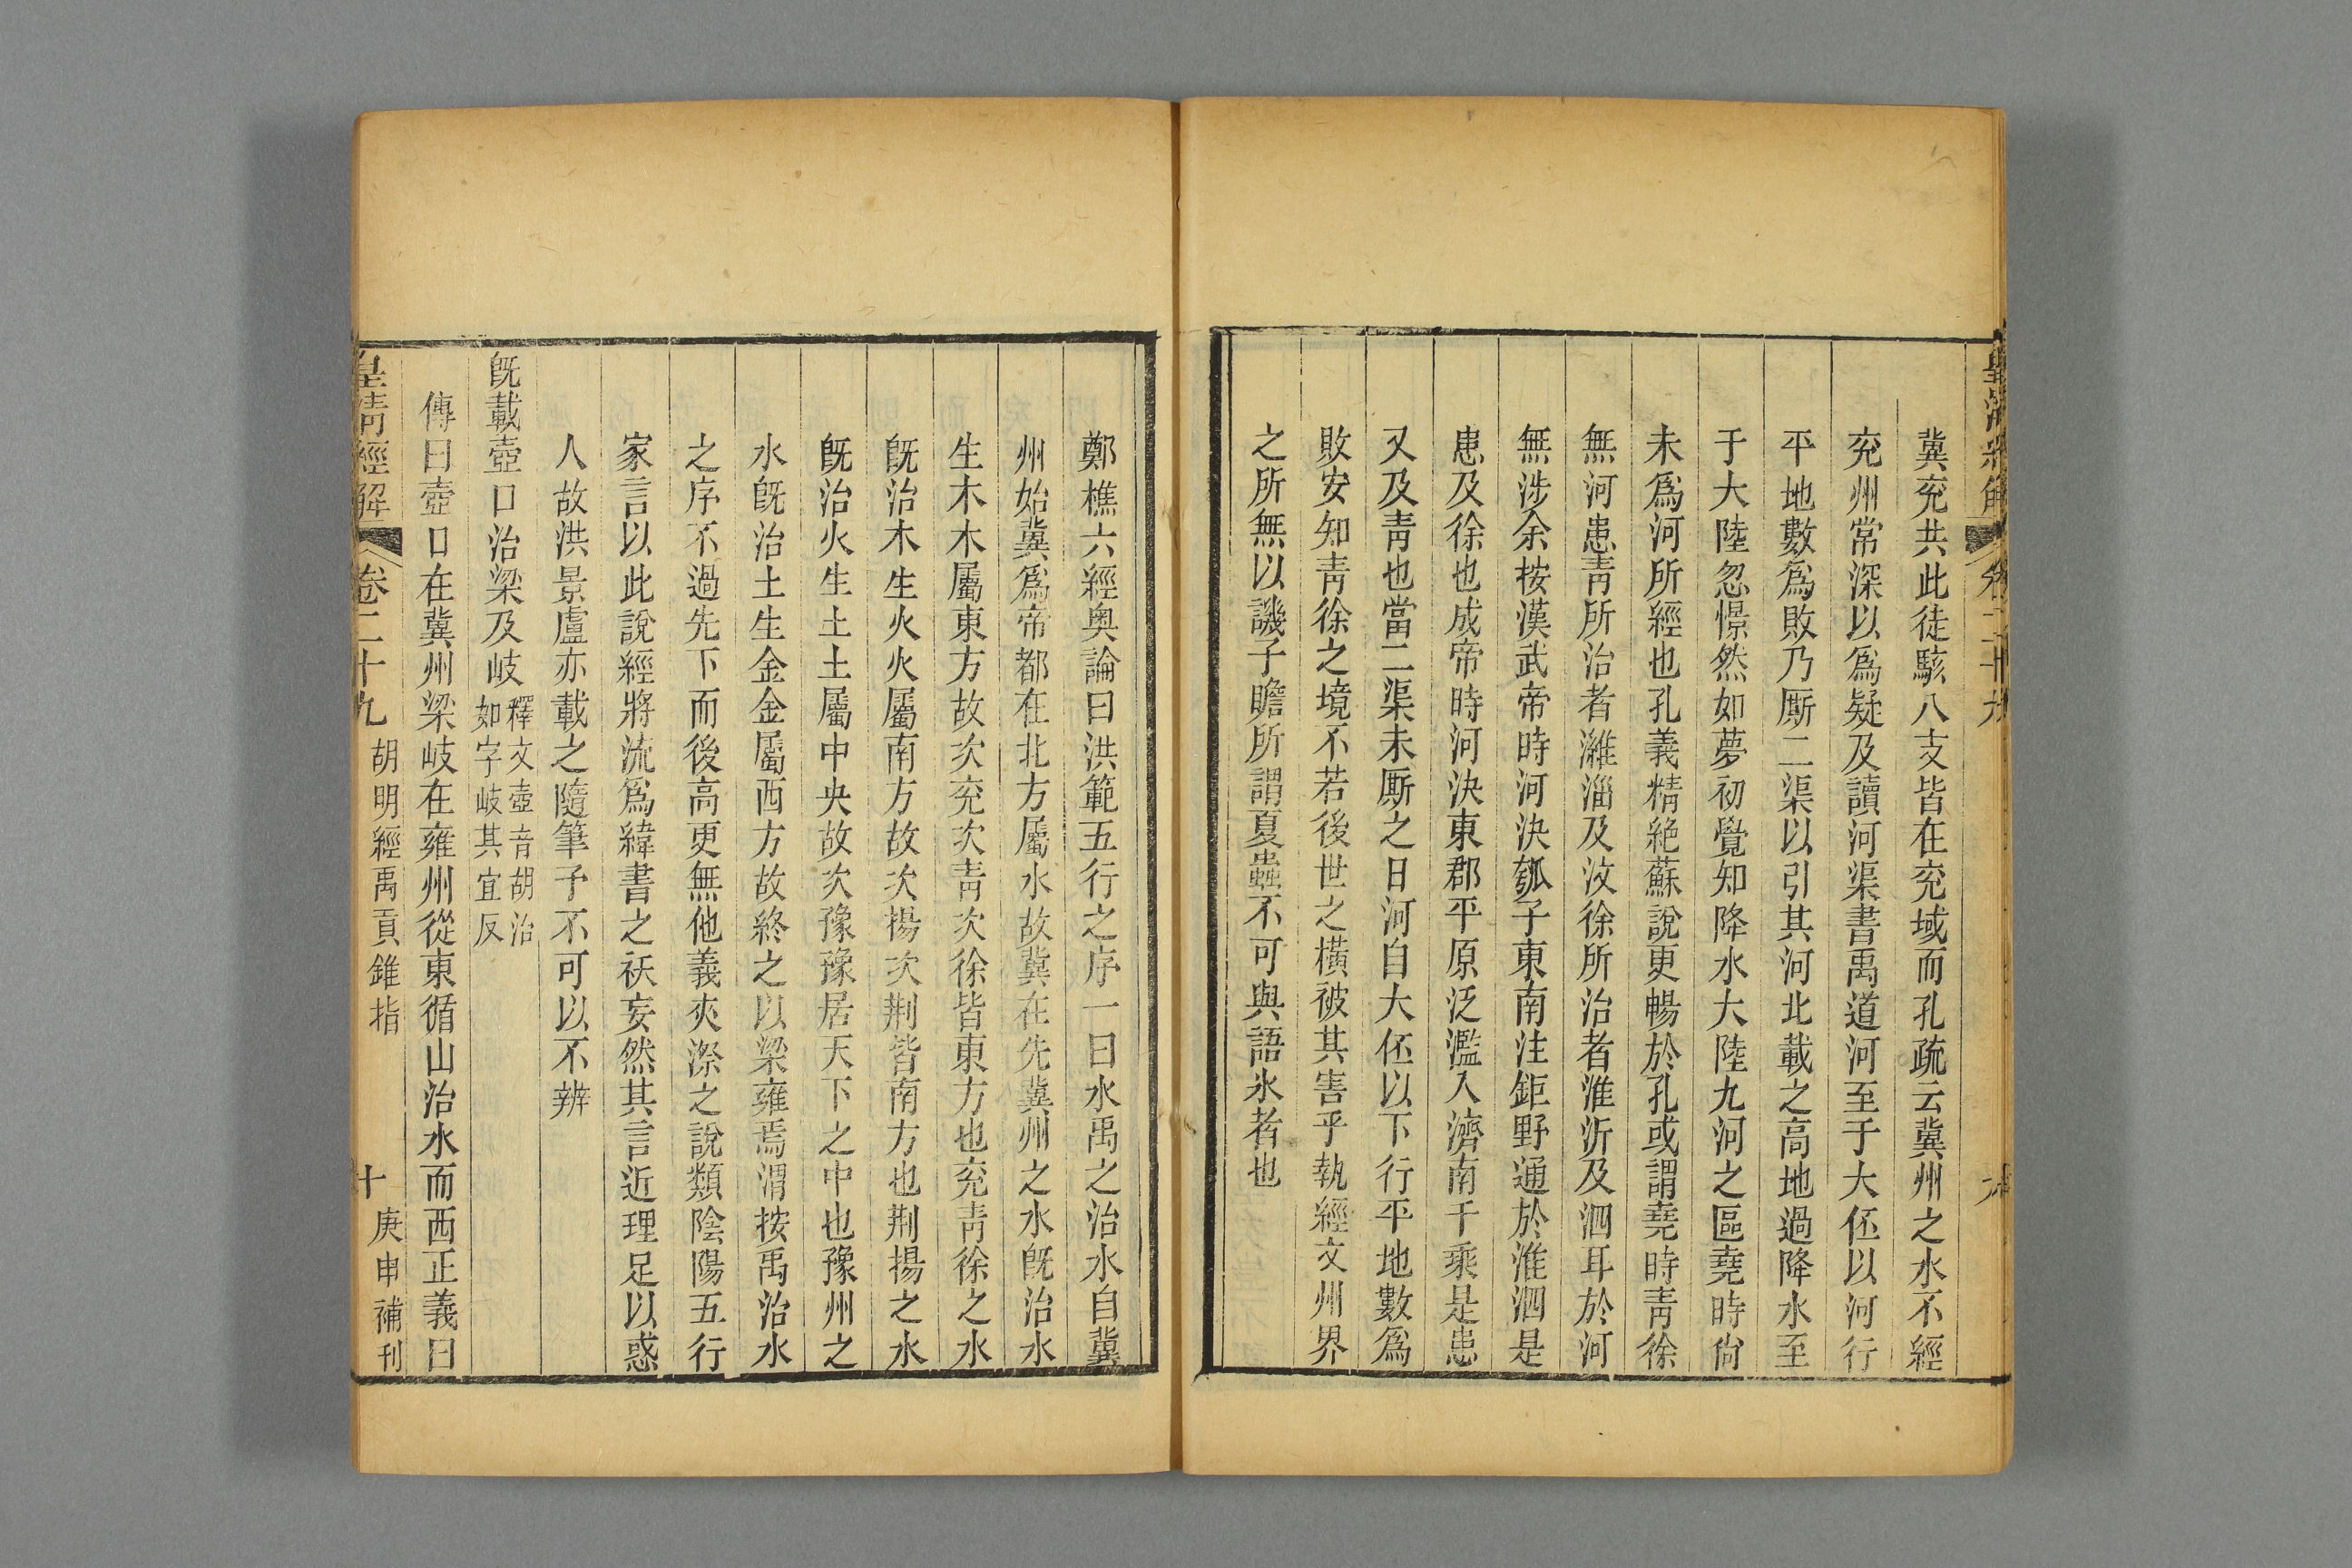 冀兗共此徒駭八支皆在兗域而孔疏云冀州之水不經
兗州常深以爲疑及讀河渠書禹道河至于大伾以河行
平地數爲敗乃厮二渠以引其河北載之高地過降水至
于大陸忽憬然如夢初覺知降水大陸九河之區堯時尙
未爲河所經也孔義精絶蘇說更暢於孔或謂堯時靑徐
無河患靑所治者濰淄及汶徐所治者淮沂及泗耳於河
無涉余按漢武帝時河決瓠子東南注鉅野通於淮泗是
患及徐也成帝時河決東郡平原泛濫入濟南千乘是患
又及靑也當二渠未厮之日河自大伾以下行平地數爲
敗安知靑徐之境不若後世之橫被其害乎執經文州界
之所無以譏子瞻所謂夏蟲不可與語氷者也
鄭樵六經奥論曰洪範五行之序一曰水禹之治水自冀
州始冀爲帝都在北方屬水故冀在先冀州之水旣治水
生木木屬東方故次兗次靑次徐皆東方也兗靑徐之水
旣治木生火火屬南方故次揚次荆皆南方也荆揚之水
旣治火生土土屬中央故次豫豫居天下之中也豫州之
水旣治土生金金屬西方故終之以梁雍焉渭按禹治水
之序不過先下而後高更無他義夾漈之說類陰陽五行
家言以此說經將流爲緯書之祅妄然其言近理足以惑
人故洪景盧亦載之隨筆予不可以不辨
旣載壺口治梁及岐釋文壺音胡治如字岐其宜反
傳曰壺口在冀州梁岐在雍州從東循山治水而西正義曰
皇淸經解 卷二十九 胡明經禹貢錐指 十 庚申補刊